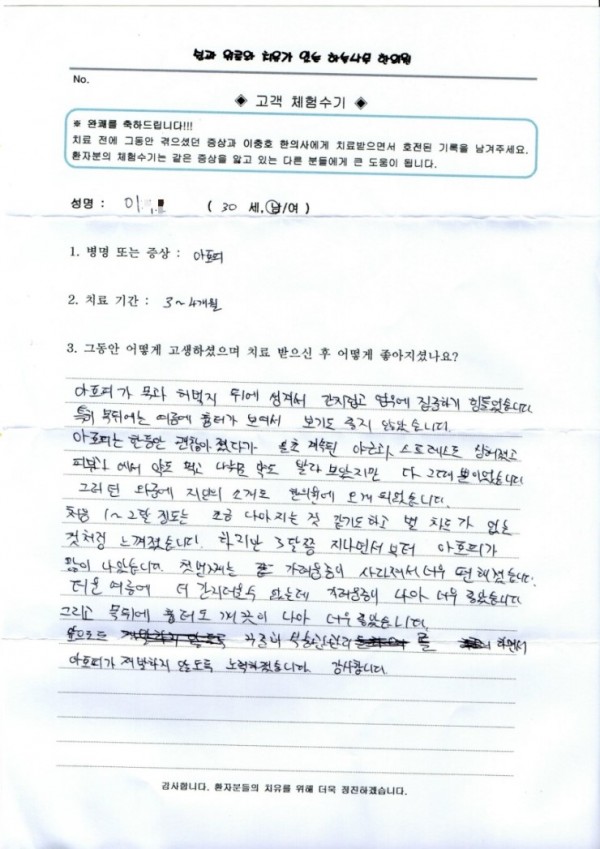 No.
◈ 고객 체험수기 ◈
※ 완쾌를 축하드립니다!!!
치료 전에 그동안 겪으셨던 증상과 이충호 한의사에게 치료받으면서 호전된 기록을 남겨주세요.
환자분의 체험수기는 같은 증상을 앓고 있는 다른 분들에게 큰 도움이 됩니다.
성명 : 이 ( 30 세, 남/여 )
1. 병명 또는 증상 : 아토피
2. 치료 기간 : 3~4개월
3. 그동안 어떻게 고생하셨으며 치료 받으신 후 어떻게 좋아지셨나요?
아토피가 목과 허벅지 뒤에 생겨서 간지럽고 업무에 집중하기 힘들었습니다.
특히 목뒤에는 여름에 흉터가 보여서 보기도 좋지 않았습니다.
아토피는 한동안 괜찮아졌다가 계속된 야근과 스트레스로 심해졌고
피부과에서 약도 먹고 나름 약도 발라 보았지만 다 그때 뿐이었습니다.
그러던 와중에 지인의 소개로 한의원에 오게 되었습니다.
처음 1~2달 정도는 조금 나아지는 것 같기도하고 별 차도가 없을
것처럼 느껴졌습니다. 하지만 3달쯤 지나면서부터 아토피가
많이 나았습니다. 첫번째는 가려움증이 사라져서 너무 편해졌습니다.
더운 여름에 더 간지러울수 있는데 가려움증이 나아 너무 좋았습니다.
그리고 목뒤에 흉터도 깨끗이 나아 너무 좋았습니다.
앞으로도 꾸준히 를 하면서
아토피가 재발하지 않도록 노력하겠습니다. 감사합니다.
감사합니다. 환자분들의 치유를 위해 더욱 정진하겠습니다.